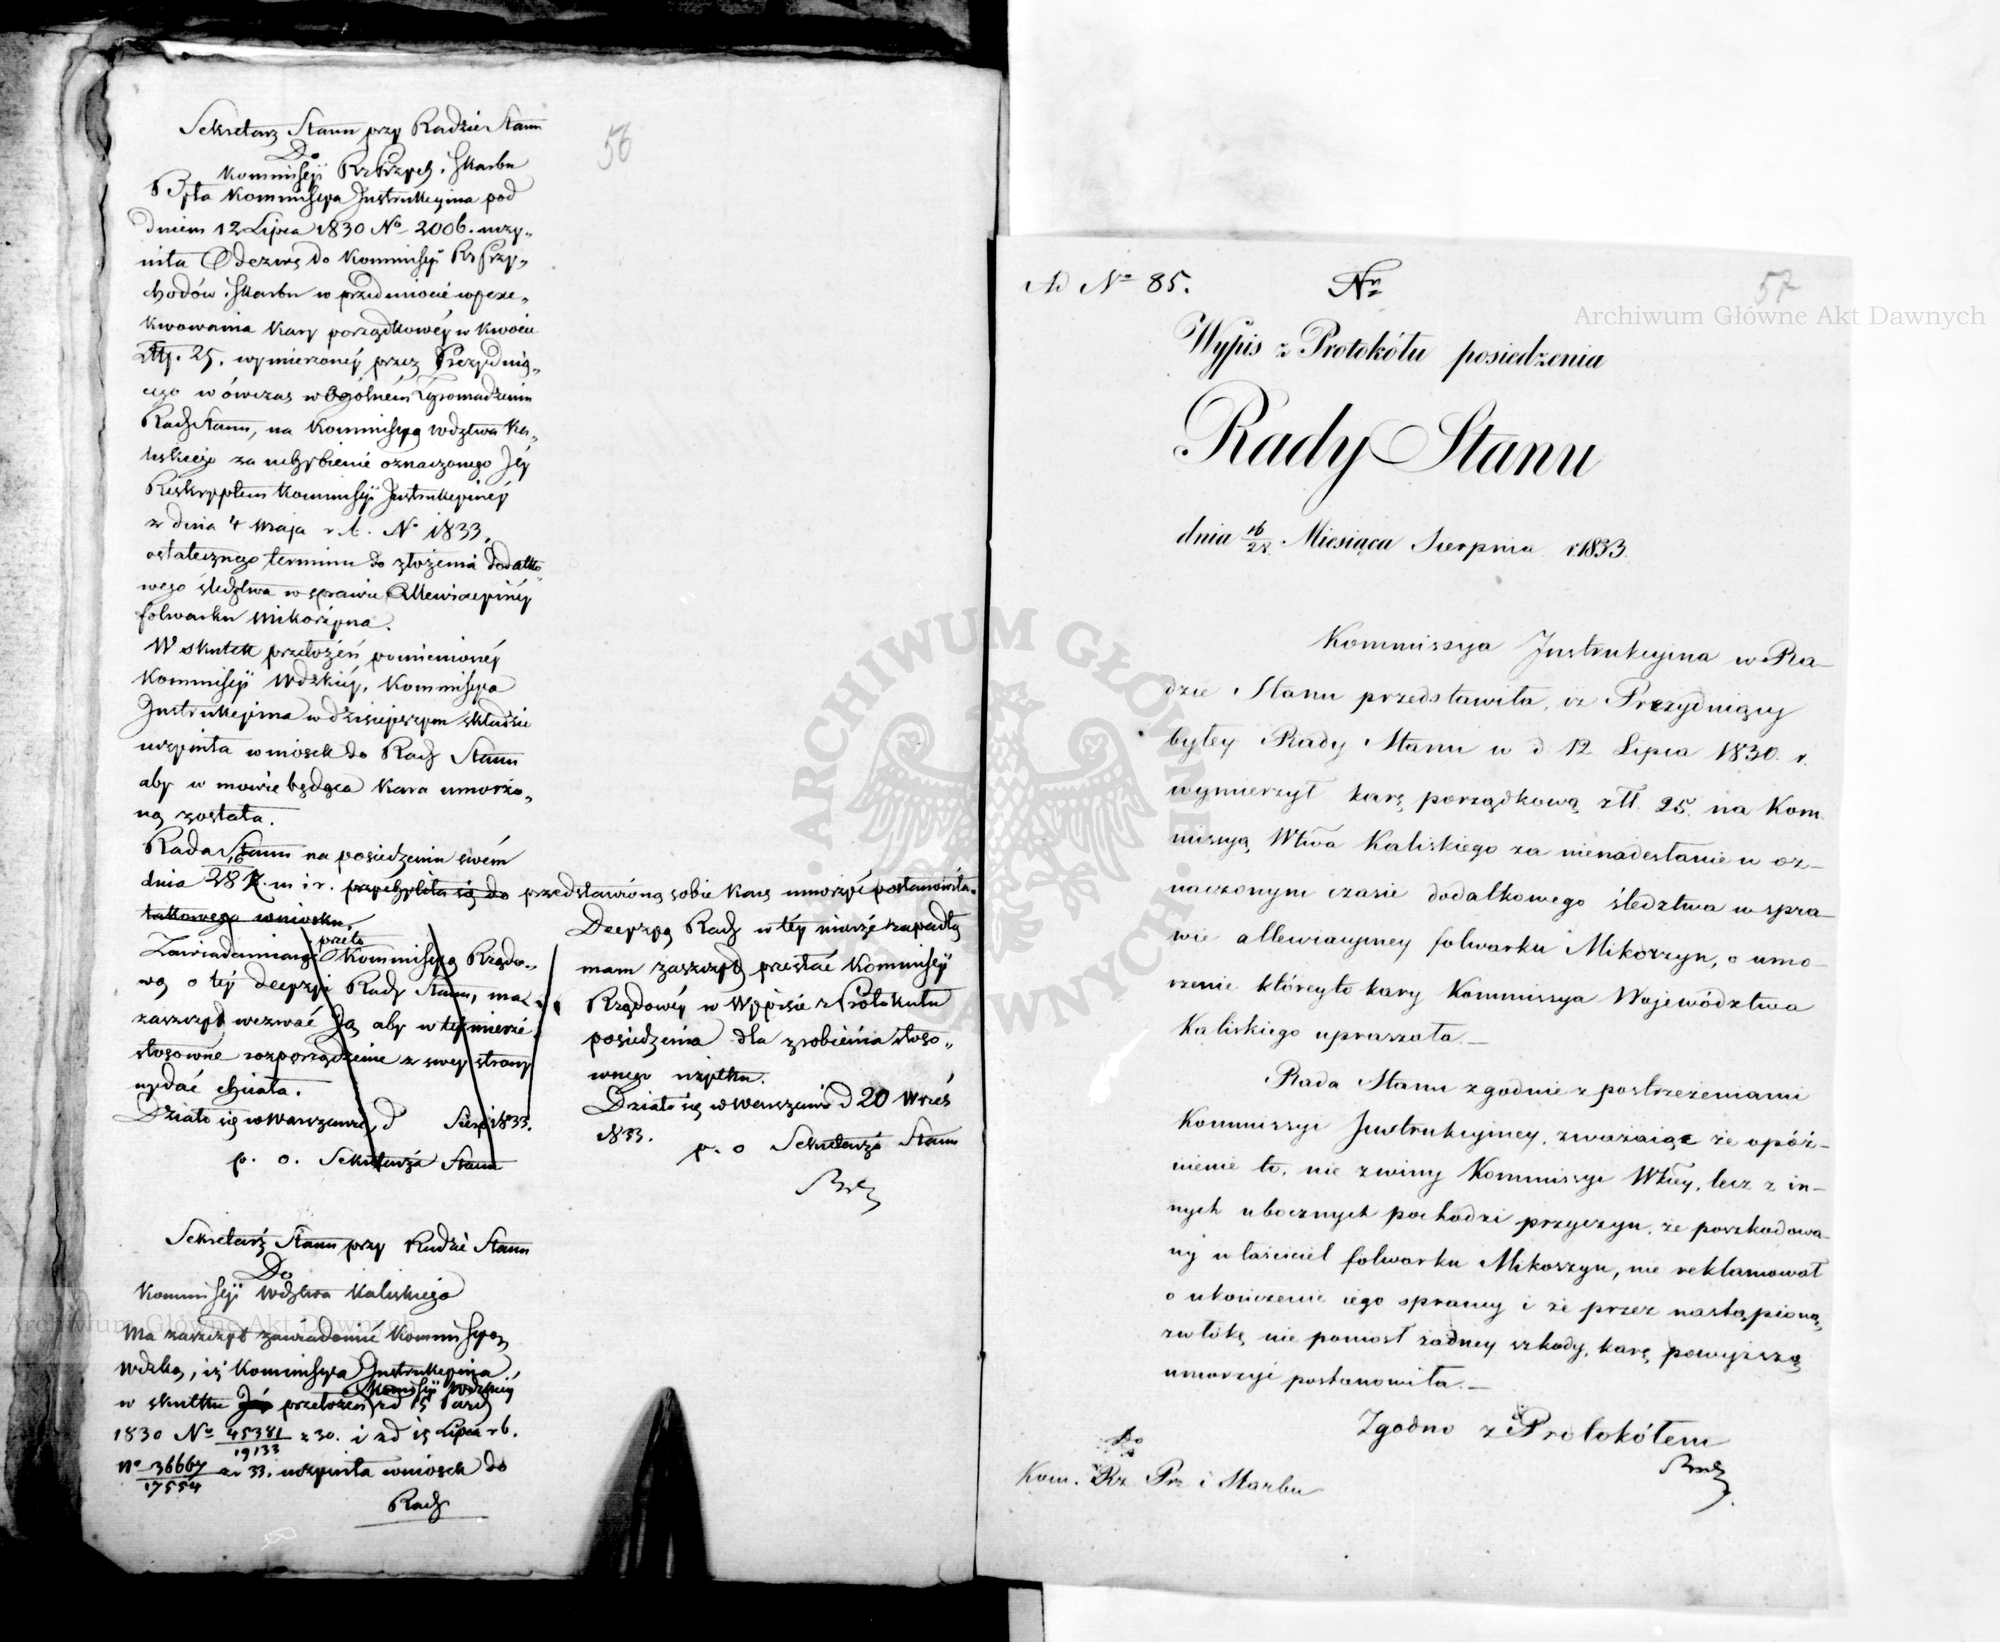 56
Sekretarz Stanu przy Radzie Stanu
Do
Kommissyi Rz Przych. i Skarbu
B. ła Kommissya Instrukcyina pod
dniem 12 Lipca 1830 No 2006. uczy„
niła Odezwę do Kommissyi Rz Przy„
chodów i Skarbu w przedmiocie wyexe„
kwowania kary porządkowéy w kwocie
Złtp. 25. wymierzonéy przez Prezydują„
cego wówczas w Ogólném Zgromadzeniu
Rady Stanu, na Kommissyą Wdztwa Ka„
liskiego za uchybienie oznaczonego Jéy
Reskryptem Kommissyi Instrukcyinéy
z dnia 4 Maja r. t. No 1833.
ostatecznego terminu do złożenia dodatko„
wego śledztwa w sprawie Allewiacyinéy
folwarku Mikorzyna.
W skutek przełożeń pomienionéy
Kommissyi Wdzkiéy, Kommissya
Instrukcyina w dzisieyszym składzie
uczyniła wniosek do Rady Stanu
aby w mowie będąca kara umorzo„
ną została.
Rada Stanu na posiedzeniu swém
dnia 28 m. i r. przychyliła się do przedstawioną sobie karę umorzyć postanowiła.
takowego wniosku.
Zawiadamiając przeto Kommissyą Rządo„
wą o téy decyzyi Rady Stanu, ma
zaszczyt wezwać Ją aby w téy mierze
stosowne rozporządzenie z swey strony
wydać chciała.
Działo się w Warszawie, d Sierp 1833.
p. o. Sekretarza Stanu
Decyzyą Rady w téy mierze zapadłą
mam zaszczyt przesłać Kommissyi
Rządowéy w Wypisie z Protokułu
posiedzenia dla zrobienia stoso„
wnego użytku.
Działo się w Warszawie d 20 Wrześ
1833.
p. o Sekretarza Stanu
Sekretarz Stanu przy Radzie Stanu
Do
Kommissyi Wdztwa Kaliskiego
Ma zaszczyt zawiadomić Kommissyą
Wdzką, iż Kommissya Instrukcyina
w skutku przełożeń Kommissyi Wdzkiéy z d 15 Paźd
1830 No 45381/19133 z 30. i z d 15 Lipca r b.
No 36667/17554 z r 33. uczyniła wniosek do
Rady
Ad No 85.
Nr
57
Wypis z Protokółu posiedzenia
Rady Stanu
dnia 16/28 Miesiąca Sierpnia r. 1833.
Kommissya Instrukcyjna w Ra–
dzie Stanu przedstawiła, iż Prezyduiący
byłey Rady Stanu w d. 12 Lipca 1830. r.
wymierzył karę porządkową złł. 25. na Kom
missyą Wtwa Kaliskiego za nienadesłanie w oz–
naczonym czasie dodatkowego śledztwa w spra–
wie allewiacyiney folwarku Mikorzyn, o umo–
rzenie któreyto kary Kommissya Województwa
Kaliskiego upraszała. –
Rada Stanu zgodnie z postrzeżeniami
Kommissyi Instrukcyiney, zważaiąc że opóź–
nienie to, nie z winy Kommissyi Wtwey, lecz z in–
nych ubocznych pochodzi przyczyn, że poszkodowa–
ny właściciel folwarku Mikorzyn, nie reklamował
o ukończenie iego sprawy i że przez nastąpioną
zwłokę nie poniosł żadney szkody, karę powyższą
umorzyć postanowiła. –
Zgodno z Protokółem
Do
Kom. Rz. Prz i Skarbu
Archiwum Główne Akt Dawnych
Archiwum Główne Akt Dawnych
ARCHIWUM GŁÓWNE AKT DAWNYCH